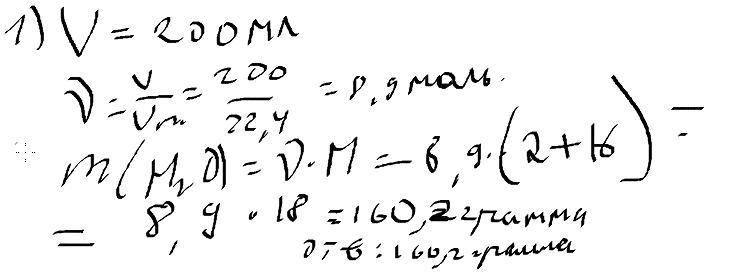 1) V = 200 мл
ν = V/Vm = 200/22,4 = 8,9 моль.
m(H2O) = ν · M = 8,9 · (2+16) =
= 8,9 · 18 = 160,2 грамма
отв: 160,2 грамма